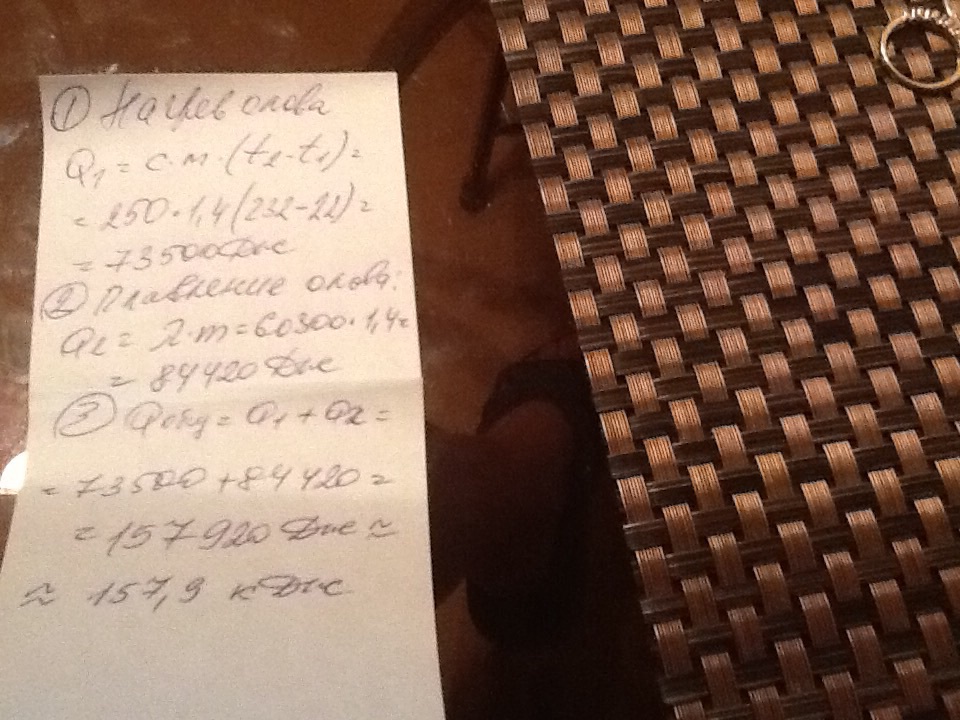 ① Нагрев олова
Q₁ = c·m·(t₂-t₁) =
= 250·1,4(232-22) =
= 73500 Дж
② Плавление олова:
Q₂ = λ·m = 60300·1,4 =
= 84420 Дж
③ Qобщ = Q₁ + Q₂ =
= 73500 + 84420 =
= 157920 Дж ≈
≈ 157,9 кДж